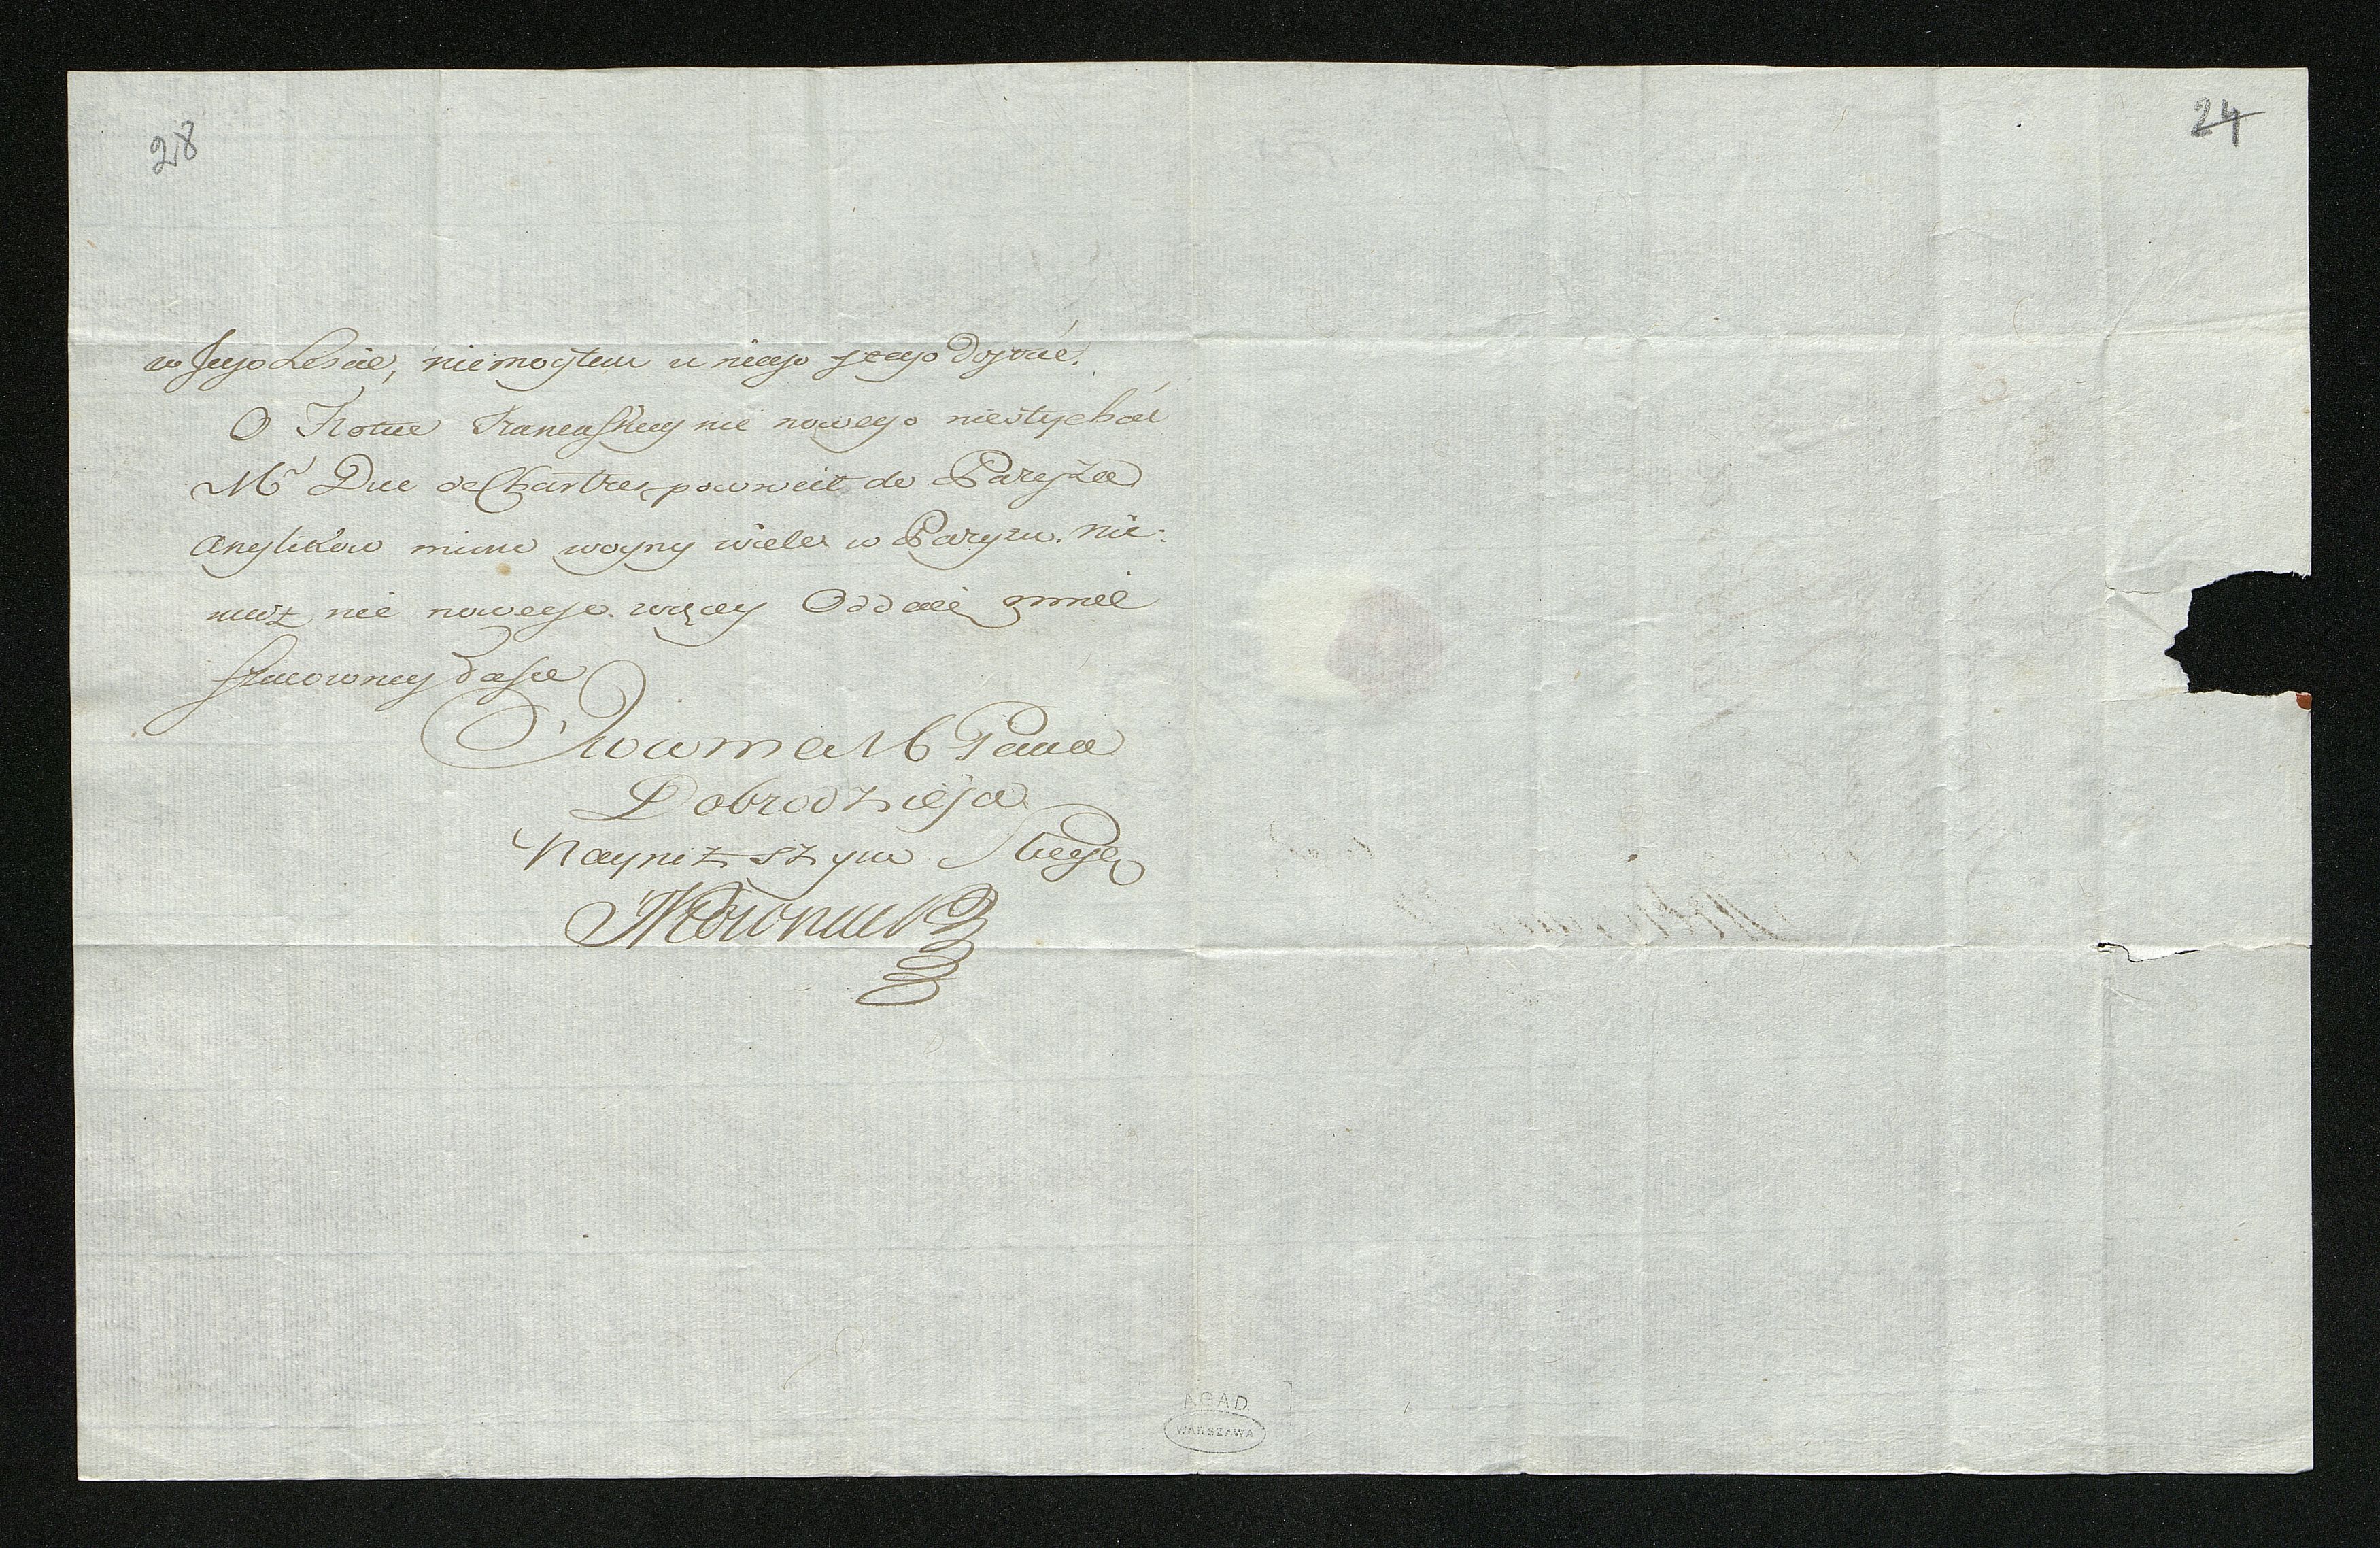 28
24
w Jego Lesie, niemogłem u niego tego Doyrzić.
O Flotue Francuskiey nic nowego niesłychać
Mr Duc de Chartres powrucił do Paryża
Anglików mimo woyny wiele w Paryżu. nie:
masz nic nowego więcy Oddaię mnie
szacowney Łasce
JWWma M Pana
Dobrodzieja
Nayniższym Sługą
AGAD
WARSZAWA